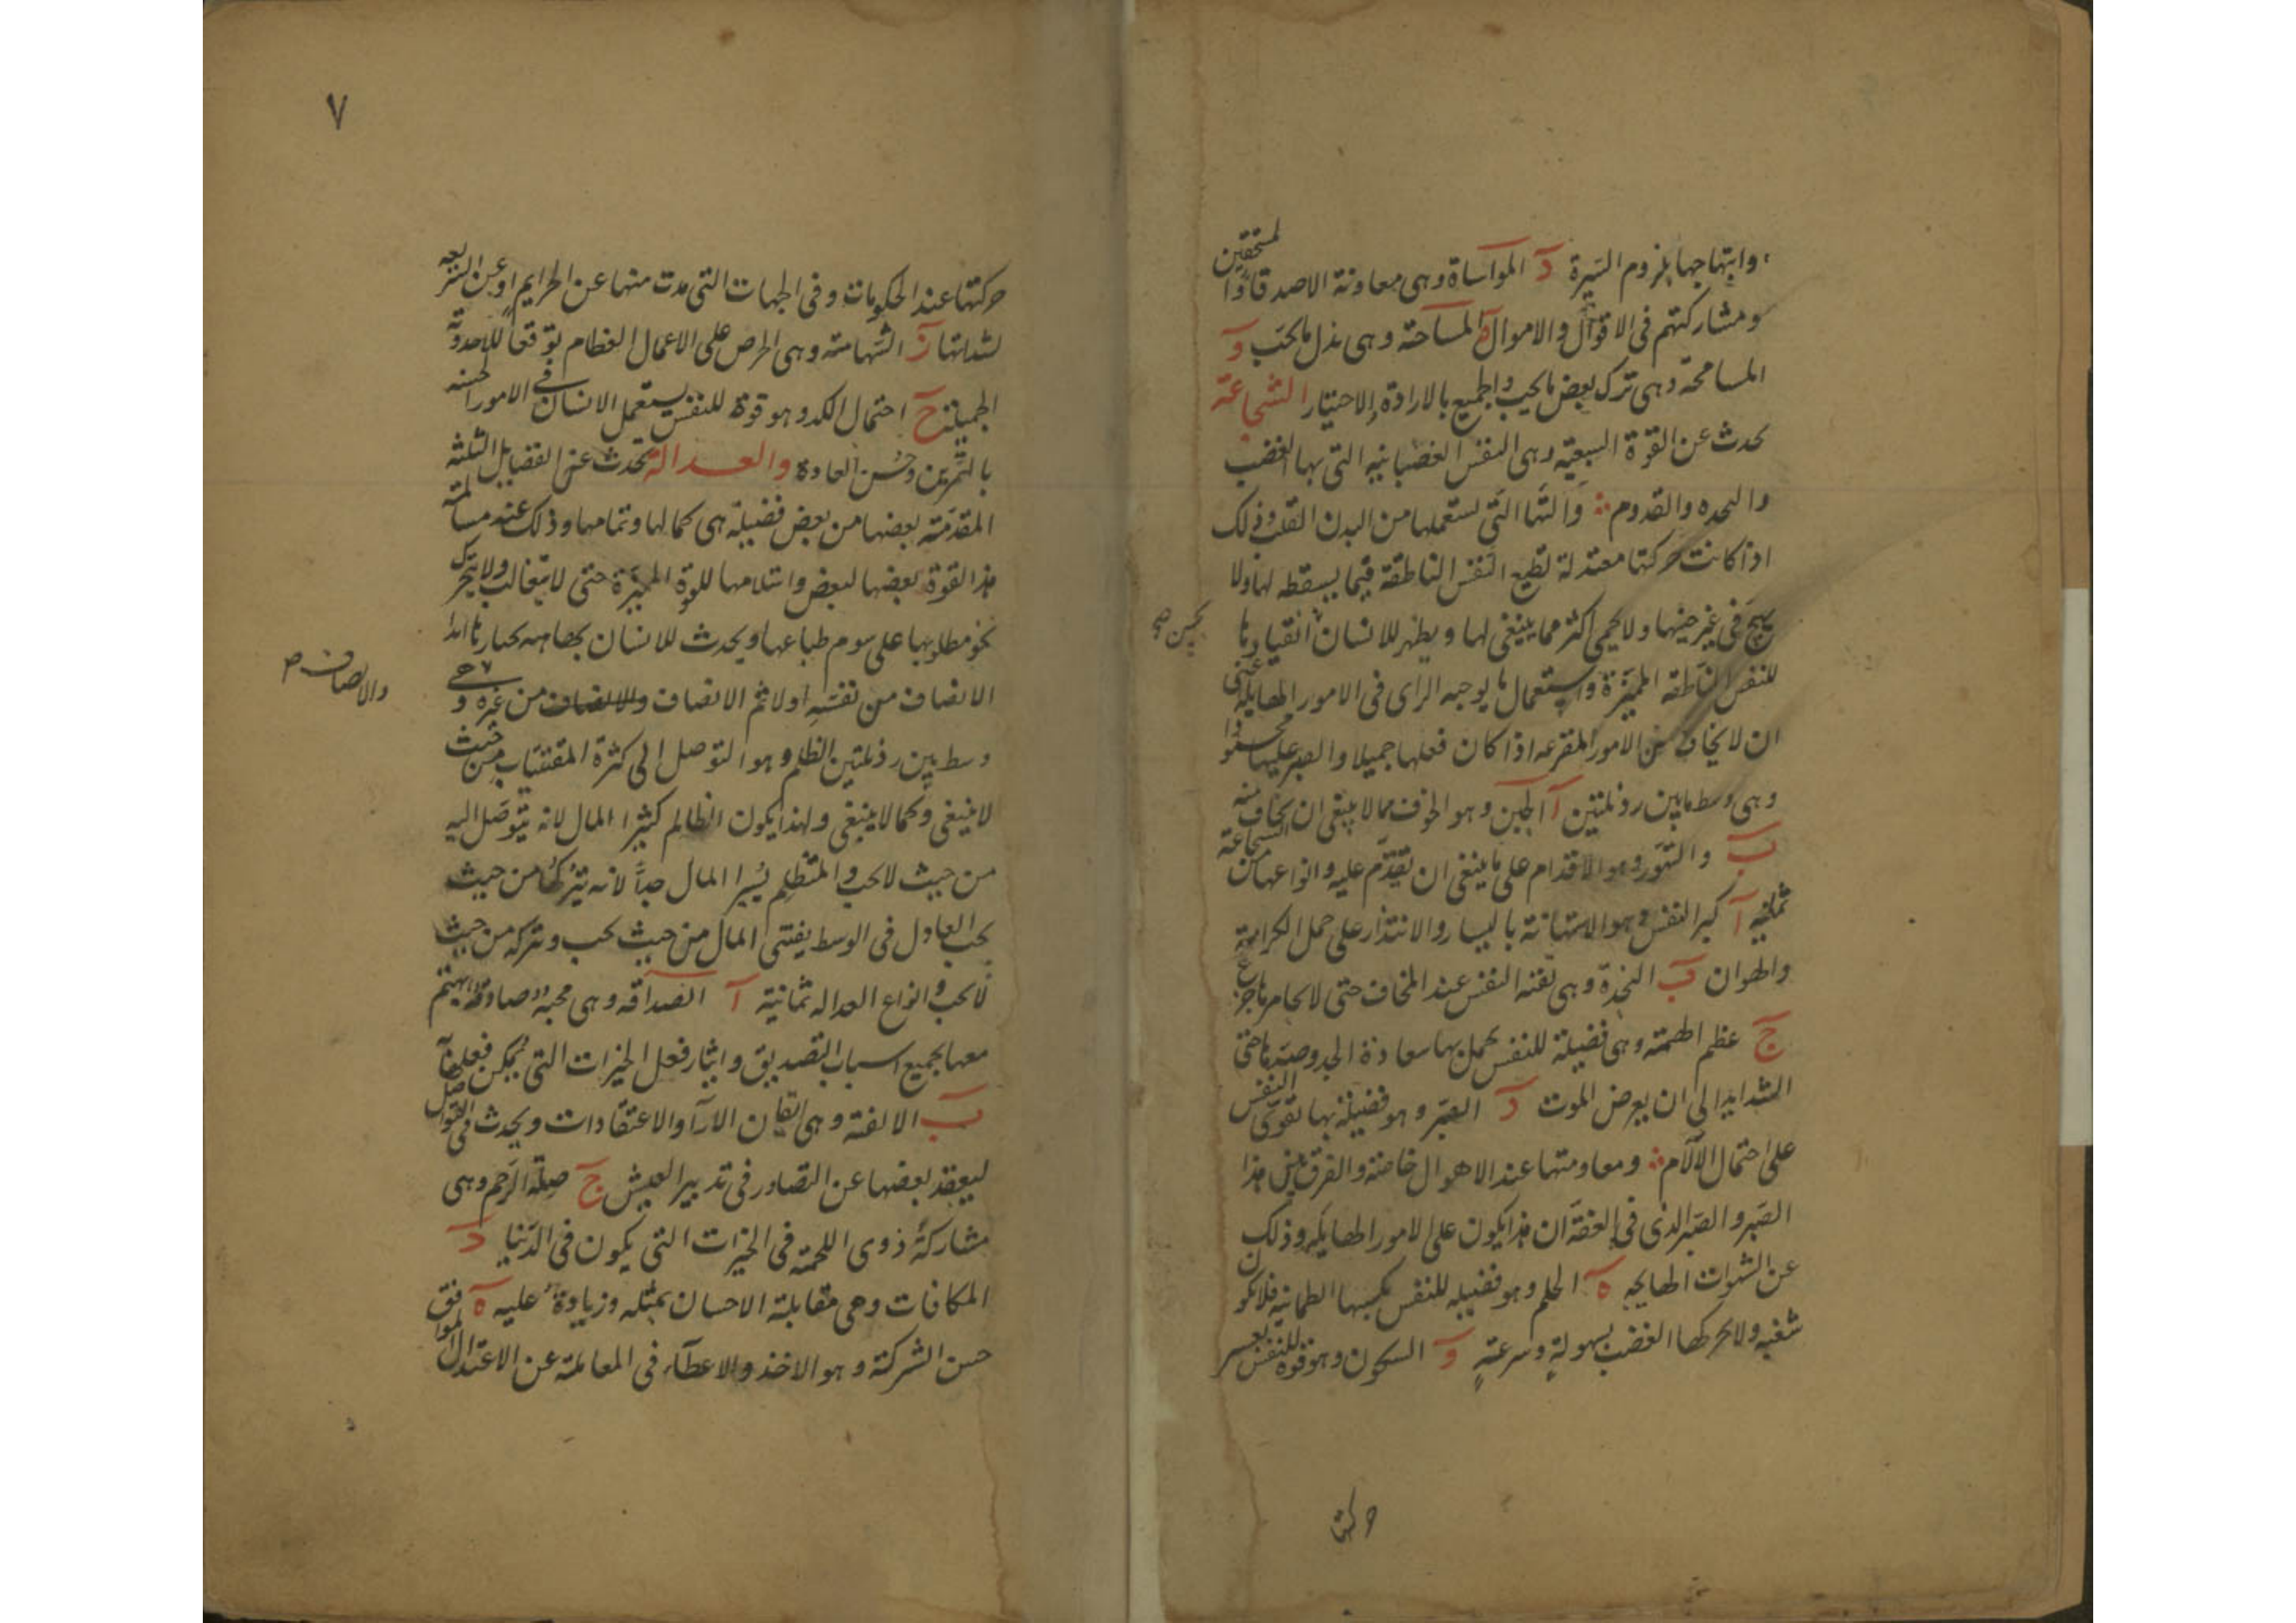 وابتهاجها بلزوم السيرة د المواساة وهى معاونة الاصدقا والمستحقين
ومشاركتهم فى الاقوال والاموال ه المساحة وهى بذل ما يجب و
المسامحة وهى ترك بعض ما يجب والجميع بالارادة والاختيار الشجاعة
يحدث عن القوة السبعيه وهى النفس الغضبانيه التى بها الغضب
والنجده والقدوم والتها التى تستعملها من البدن القلب وذلك
اذا كانت حركتها معتدلة تطيع النفس الناطقة فيما يسقطه لها ولا
يهيج فى غير حينها ولا يحمى اكثر مما ينبغى لها ويظهر للانسان انقيادها
للنفس الناطقه المميزة واستعمال ما يوجبه الراى فى الامور الهايله اعنى
ان لا يخاف من الامور المفزعه اذا كان فعلها جميلا والصبر عليها محمودا
وهى وسط ما بين رذيلتين آ الجبن وهو الخوف مما لا ينبغى ان يخاف منه
ب والتهور وهو الاقدام على ما ينبغى ان يقدم عليه وانواعها من الشجاعة
ثمانيه آ كبر النفس وهو الاستهانة باليسار والاقتدار على حمل الكرامة
والهوان ب النجدة وهى ثقته النفس عند المخاف حتى لا يخامرها جزع
ج عظم الهمة وهى فضيلة للنفس يحمل بها سعادة الجد وضدها حتى
الشدايد الى ان يعرض الموت د الصبر وهو فضيلة بها تقوى النفس
على احتمال الآلام ومعاومتها عند الاهوال خاصة والفرق بين هذا
الصبر والصبر الذى فى العفة ان هذا يكون على الامور الهايله وذلك
عن الشهوات الهايجه ه الحلم وهو فضيله للنفس يكسبها الطمانية فلا تكون
شغبه ولا يحركها الغضب بسهولة وسرعة و السكون وهو قوة للنفس تعسر
حركتها
٧
حركتها عند الحكومات وفى الجهات التى مدت منها عن الحرايم او عن الشريعه
لشدتها ز الشهامة وهى الحرص على الاعمال العظام توقعا للاحدوثه
الجميلة ح احتمال الكد وهو قوة للنفس يستعمل الانسان فى الامور الحسنه
بالتمرين وحسن العادة والعدالة يحدث عن الفضايل الثلثة
المقدمة بعضها من بعض فضيلة هى كمالها وتمامها وذلك عند مسالمة
هذا القوة بعضها لبعض واستلامها للقوة المميزة حتى لا يتغالب ولا يتحرك
نحو مطلوبها على سوم طباعها ويحدث للانسان بها
الانصاف من نفسه اولا ثم الانصاف والانصاف من غيره وهى
والانصاف
وسط بين رذيلتين الظلم وهو التوصل الى كثرة المقتنيات من حيث
لا ينبغى وكما لا ينبغى ولهذا يكون الظالم كثير المال لانه يتوصل اليه
من حيث لا يحب والمتظلم يسير المال جدا لانه يتركها من حيث
يجب العادل فى الوسط يقتنى المال من حيث يجب ويتركه من حيث
لا يجب وانواع العداله ثمانية آ الصداقه وهى محبة صادقة يهتم
معها بجميع اسباب التصديق وايثار فعل الخيرات التى يمكن فعلها
ب الالفة وهى اتفاق الآراء والاعتقادات ويحدث فى التواصل
ليعقد بعضها عن التضادر فى تدبير العيش ج صلة الرحم وهى
مشاركة ذوى اللحمة فى الخيرات التى يكون فى الدنيا د
المكافات وهى مقابلة الاحسان بمثله وزيادة عليه ه
حسن الشركة وهو الاخذ والاعطاء فى المعاملة عن الاعتدال الموافق